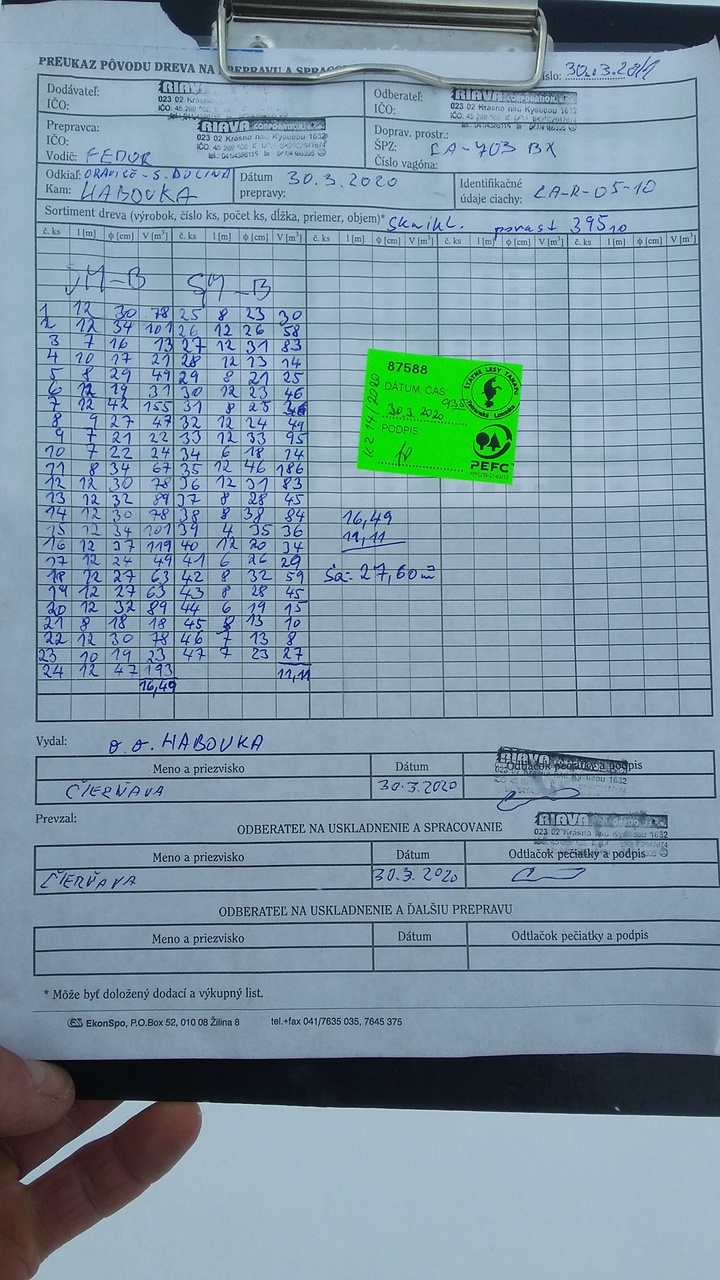 PREUKAZ PÔVODU DREVA NA PREPRAVU A
30.3.20/1
Dodávateľ: RIAVA
IČO: 023 02 Krásno
Odberateľ: RIAVA CORPORATION
IČO:
Prepravca: RIAVA CORPORATION
IČO: 023 02 Krásno nad Kysucou 1632
Vodič: FEDOR
Doprav. prostr.:
ŠPZ: CA-703 BX
Číslo vagóna:
Odkiaľ: ORAVICE-S. DOLINA
Kam: HABOVKA
Dátum prepravy: 30.3.2020
Identifikačné údaje ciachy: CA-R-05-10
Sortiment dreva (výrobok, číslo ks, počet ks, dĺžka, priemer, objem)* porast 395 10
č. ks l [m] ϕ [cm] V [m³] č. ks l [m] ϕ [cm] V [m³] č. ks l [m] ϕ [cm] V [m³] č. ks l [m] ϕ [cm] V [m³] č. ks l [m] ϕ [cm] V [m³]
SM-B SM-B
1 12 30 78 25 8 23 30
2 12 34 101 26 12 26 58
3 7 16 13 27 12 31 83
4 10 17 21 28 12 13 14
5 8 29 49 29 8 21 25
6 12 19 31 30 12 23 46
7 12 42 155 31 8 25
8 9 27 47 32 12 24 49
9 7 21 22 33 12 33 95
10 7 22 24 34 6 18 14
11 8 34 67 35 12 46 186
12 12 30 78 36 12 31 83
13 12 32 89 37 8 28 45
14 12 30 78 38 8 38 84
15 12 34 101 39 4 35 36
16 12 37 119 40 12 20 34
17 12 24 49 41 6 26 29
18 12 27 63 42 8 32 59
19 12 27 63 43 8 28 45
20 12 32 89 44 6 19 15
21 8 18 18 45 8 13 10
22 12 30 78 46 7 13 8
23 10 19 23 47 7 23 27
24 12 47 193 11,11
16,49
87588
ŠTÁTNE LESY TANAPU
DÁTUM, ČAS
30.3.2020 935
PODPIS
KZ 14/2020
PEFC
16,49
11,11
Sa = 27,60 m³
Vydal: o.o. HABOVKA
Meno a priezvisko Dátum Odtlačok pečiatky a podpis
ČIERŇAVA 30.3.2020
RIAVA
Prevzal:
ODBERATEĽ NA USKLADNENIE A SPRACOVANIE
RIAVA
023 02 Krásno nad Kysucou 1632
Meno a priezvisko Dátum Odtlačok pečiatky a podpis
ČIERŇAVA 30.3.2020
ODBERATEĽ NA USKLADNENIE A ĎALŠIU PREPRAVU
Meno a priezvisko Dátum Odtlačok pečiatky a podpis
* Môže byť doložený dodací a výkupný list.
EkonSpo, P.O.Box 52, 010 08 Žilina 8 tel.+fax 041/7635 035, 7645 375